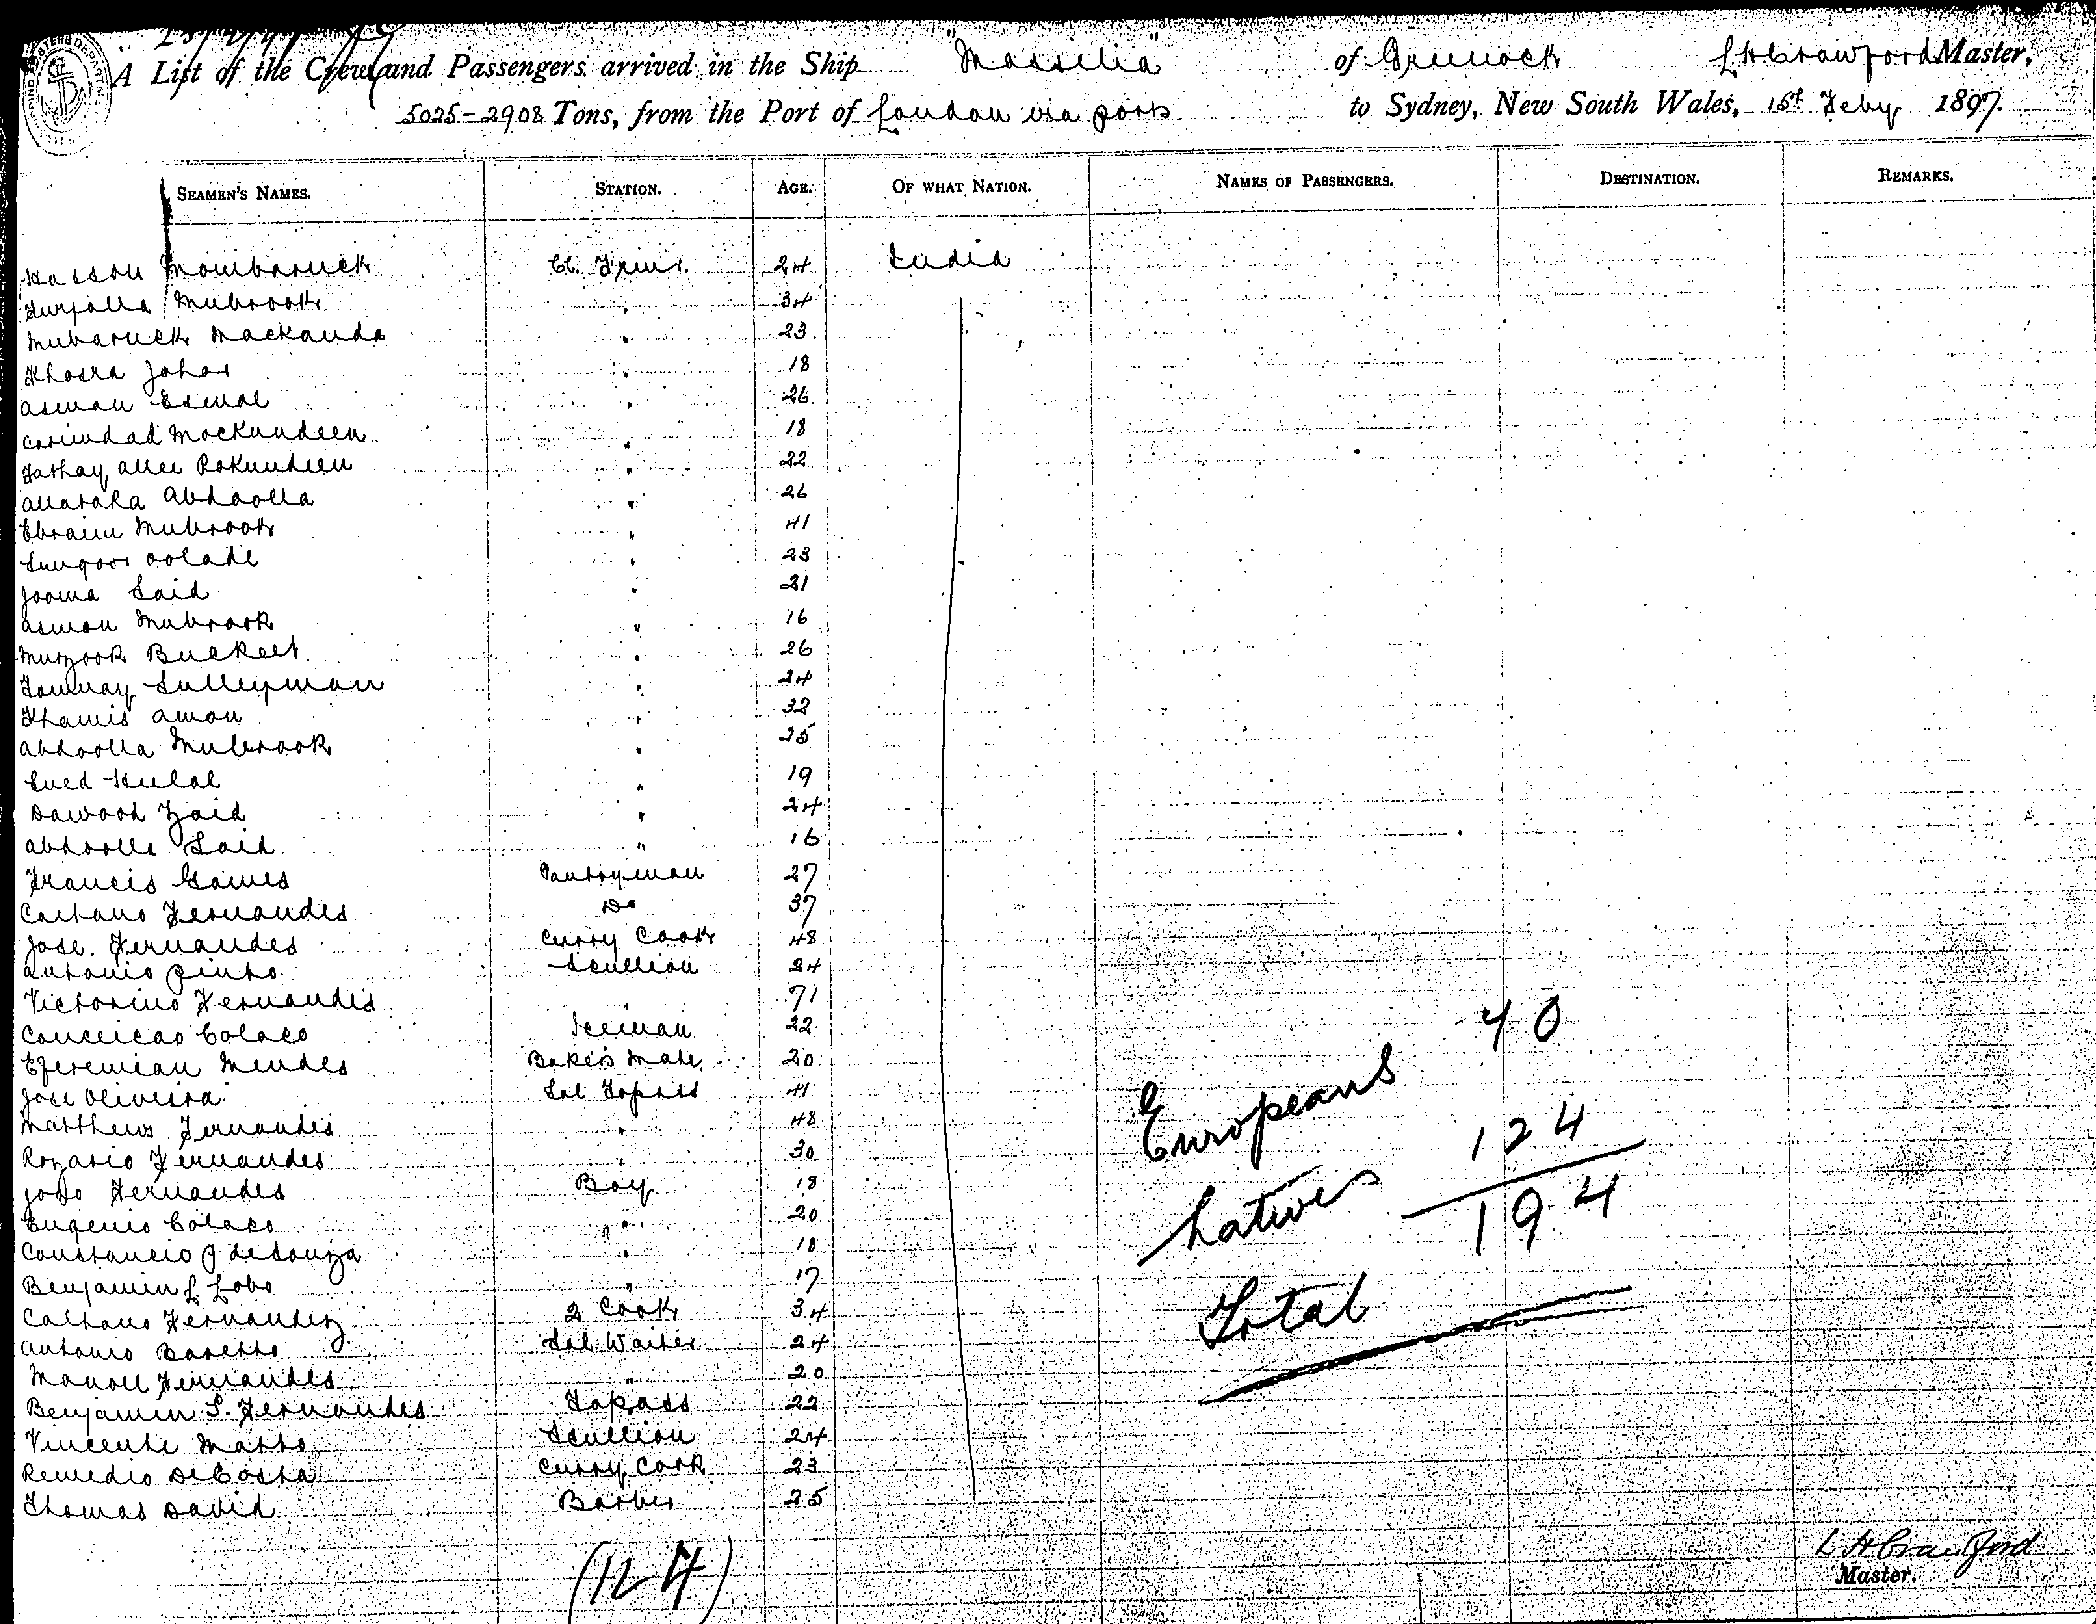 A List of the Crew and Passengers arrived in the Ship "Massilia" of Greenock L H Crawford Master,
5025-2908 Tons, from the Port of London via ports to Sydney, New South Wales, 15th Feby 1897.
SEAMEN'S NAMES. STATION. AGE. OF WHAT NATION. NAMES OF PASSENGERS. DESTINATION. REMARKS.
Hassou Mombaruck 24 India
Mubrook " 34
Mubaruck Mackanda " 23
Khosra Johar " 18
Asmau Esmal " 26
Carimdad Mockundeen " 18
Fathay Allee Rokundeen " 22
Allaraka Abdoolla " 26
Ebraim Mubrook " 41
Sungoor " 23
Jooma Said " 21
Asmau Mubrook " 16
Murzook Buckeet " 26
Sulleyman " 24
Khamis Amau " 32
Abdoolla Mubrook " 25
Hulal " 19
Dawood Zaid " 24
Abdoolla Said " 16
Francis Gomes Pantryman 27
Caetano Fernandes Do 37
Jose Fernandes Curry Cook 48
Antonio Pinto Scullion 24
Victorino Fernandes " 71
Conceicao Colaco Iceman 22
Mendes Baker's Mate 20
Jose Oliveira Sal Topass 41
Matthews Fernandes " 48
Rozario Fernandes " 30
João Fernandes Boy 18
Eugenio Colaco " 20
Constancio J deSouza " 18
Benjamin L Lobo " 17
Caetano Fernandez 2 Cook 34
Antonio Baretto Sal Waiter 24
Manoel Fernandes " 20
Benjamin S. Fernandes Topass 22
Vincente Matto Scullion 24
Remedio DeCosta Curry Cook 23
Thomas David Barber 25
Europeans 70
Natives 124
Total 194
(124)
L H Crawford
Master.